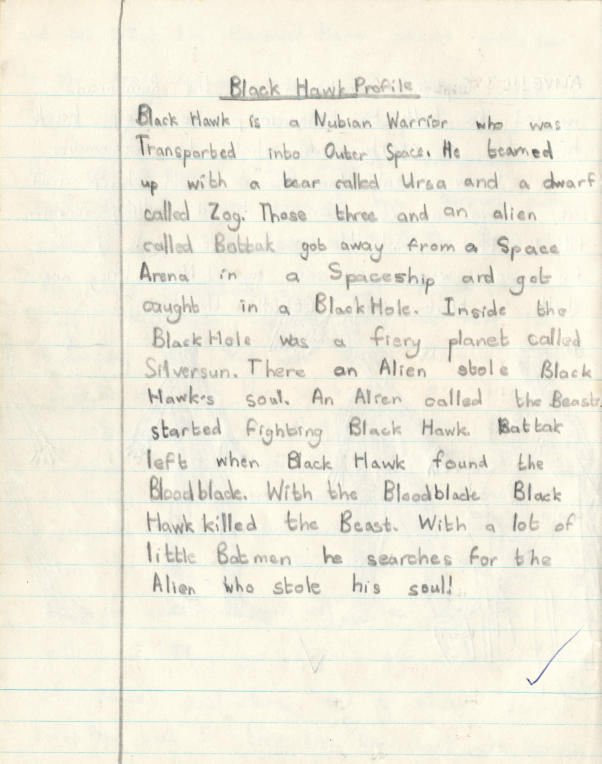 Black Hawk Profile
Black Hawk is a Nubian Warrior who was
Transported into Outer Space. He teamed
up with a bear called Ursa and a dwarf
called Zog. Those three and an alien
called Battak got away from a Space
Arena in a Spaceship and got
caught in a Black Hole. Inside the
Black Hole was a fiery planet called
Silversun. There an Alien stole Black
Hawk's soul. An Alien called the Beast
started fighting Black Hawk. Battak
left when Black Hawk found the
Bloodblade. With the Bloodblade Black
Hawk killed the Beast. With a lot of
little Batmen he searches for the
Alien who stole his soul!